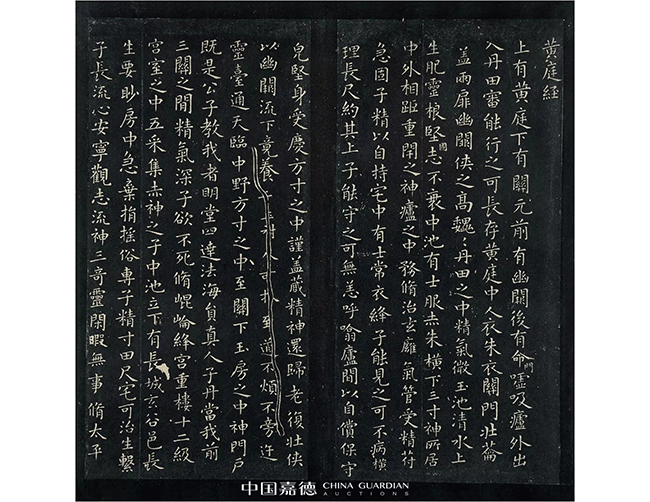 黃庭経
上有黃庭下有關元前有幽關後有命門噓吸廬外出
入丹田審能行之可長存黃庭中人衣朱衣關門壯籥
蓋兩扉幽關俠之高魏〻丹田之中精氣微玉池清水上
生肥靈根堅固志不衰中池有士服赤朱橫下三寸神所居
中外相距重閇之神廬之中務脩治玄廱氣管受精苻
急固子精以自持宅中有士常衣絳子能見之可不病橫
理長尺約其上子能守之可無恙呼噏廬間以自償保守
皃堅身受慶方寸之中謹盖藏精神還歸老復壯俠
以幽關流下竟養道不煩不旁迕
靈臺通天臨中野方寸之中至關下玉房之中神門戶
既是公子教我者明堂四達法海員真人子丹當我前
三關之間精氣深子欲不死脩崐崘絳宮重樓十二級
宮室之中五采集赤神之子中池立下有長城玄谷邑長
生要眇房中急棄捐摇俗專子精寸田尺宅可治生繫
子長流心安寧觀志流神三奇靈閑暇無事脩太平
中国嘉德 CHINA GUARDIAN
AUCTIONS